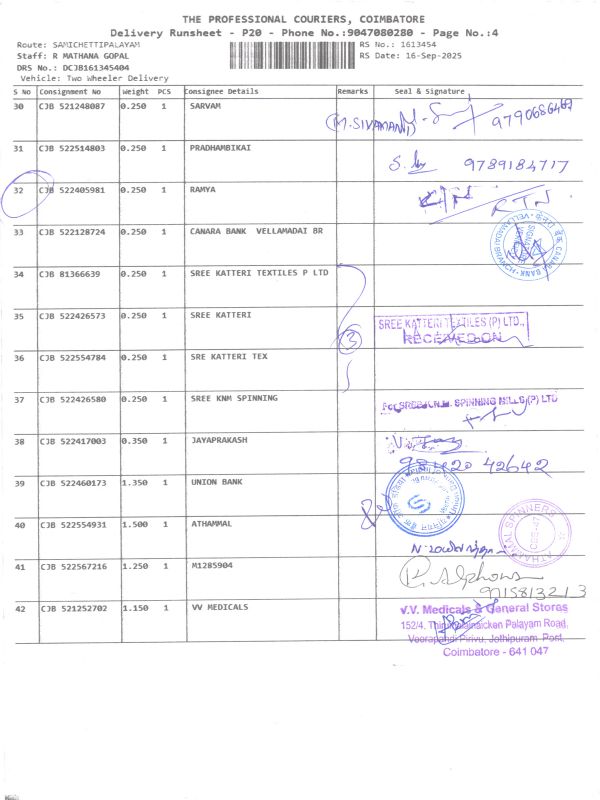 THE PROFESSIONAL COURIERS, COIMBATORE
Delivery Runsheet - P20 - Phone No.:9047080280 - Page No.:4
Route: SAMICHETTIPALAYAM RS No.: 1613454
Staff: R MATHANA GOPAL RS Date: 16-Sep-2025
DRS No.: DCJB161345404
Vehicle: Two Wheeler Delivery
S No Consignment No Weight PCS Consignee Details Remarks Seal & Signature
30 CJB 521248087 0.250 1 SARVAM
M.SIVAMANI 9790686469
31 CJB 522514803 0.250 1 PRADHAMBIKAI
9789184717
32 CJB 522405981 0.250 1 RAMYA
RTN
33 CJB 522128724 0.250 1 CANARA BANK VELLAMADAI BR
CANARA BANK
VELLAMADAI BRANCH
34 CJB 81366639 0.250 1 SREE KATTERI TEXTILES P LTD
35 CJB 522426573 0.250 1 SREE KATTERI
SREE KATTERI TEXTILES (P) LTD.,
RECEIVED ON
3
36 CJB 522554784 0.250 1 SRE KATTERI TEX
37 CJB 522426580 0.250 1 SREE KNM SPINNING
For SREE K.N.M. SPINNING MILLS (P) LTD
38 CJB 522417003 0.350 1 JAYAPRAKASH
98420 42642
39 CJB 522460173 1.350 1 UNION BANK
40 CJB 522554931 1.500 1 ATHAMMAL
ATHAMMAL SPINNERS
CBE-47
41 CJB 522567216 1.250 1 M1285904
R. Alphons
9715813213
42 CJB 521252702 1.150 1 VV MEDICALS
V.V. Medicals & General Stores
152/4, Thirumalainaicken Palayam Road,
Veerapandi Pirivu, Jothipuram Post,
Coimbatore - 641 047